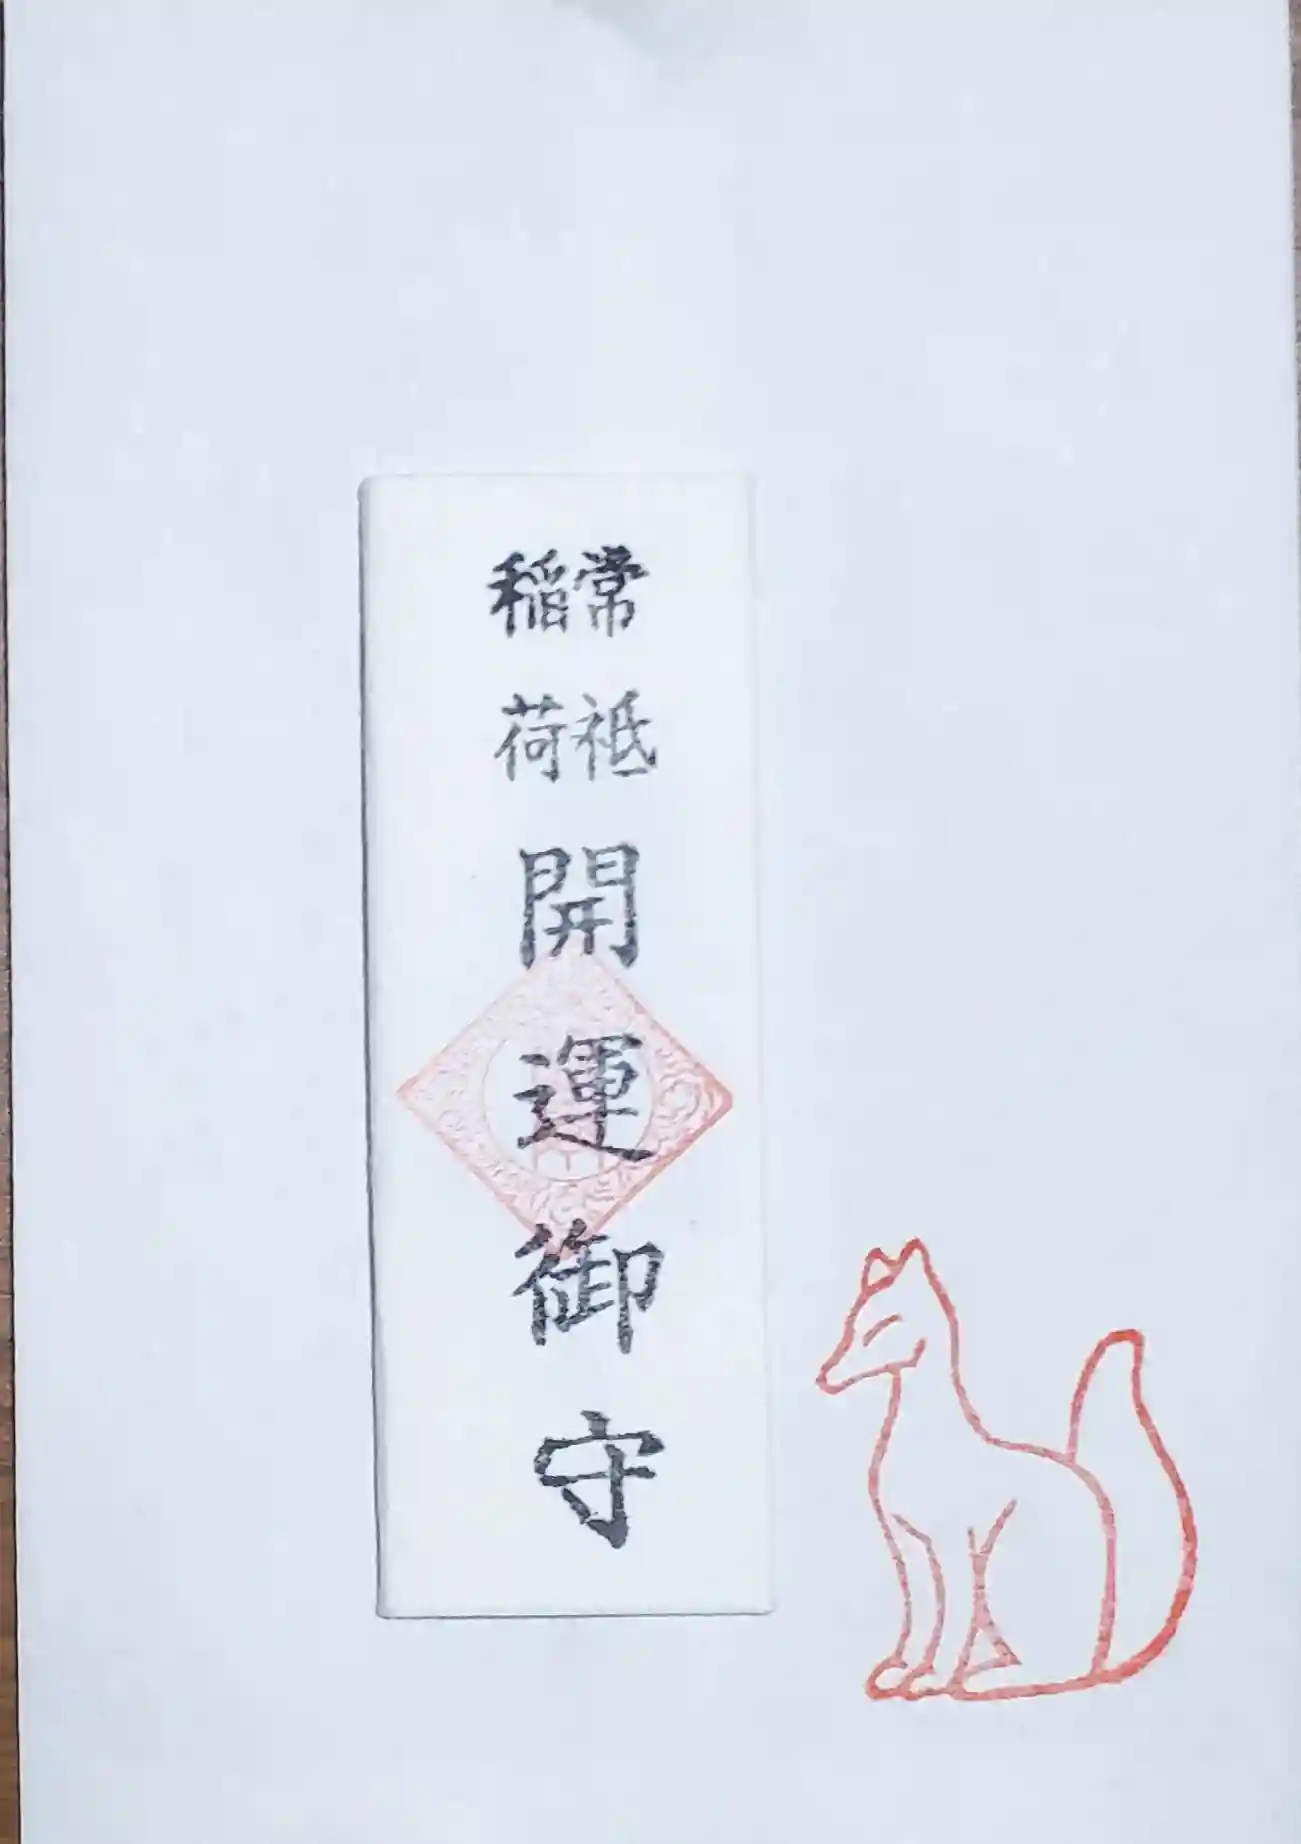 常祇
稲荷
開運御守